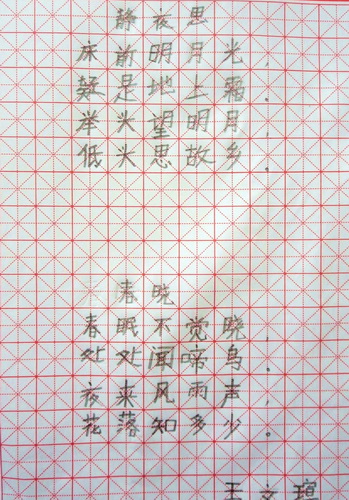 静夜思
床前明月光,
疑是地上霜。
举头望明月,
低头思故乡。
春晓
春眠不觉晓,
处处闻啼鸟。
夜来风雨声,
花落知多少。
王文瑄